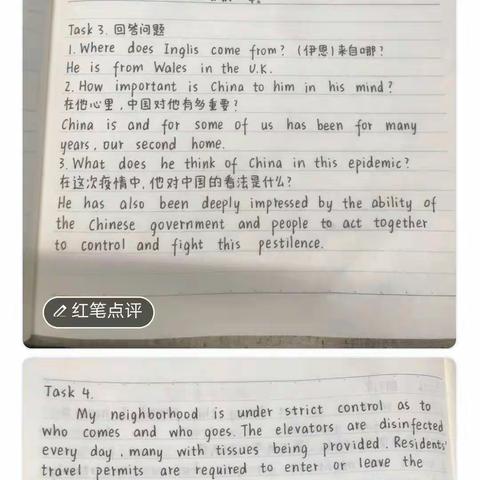 Task 3. 回答问题
1. Where does Inglis come from? (伊恩)来自哪?
He is from Wales in the U.K.
2. How important is China to him in his mind?
在他心里,中国对他有多重要?
China is and for some of us has been for many
years, our second home.
3. What does he think of China in this epidemic?
在这次疫情中,他对中国的看法是什么?
He has also been deeply impressed by the ability of
the Chinese government and people to act together
to control and fight this pestilence.
红笔点评
Task 4.
My neighborhood is under strict control as to
who comes and who goes. The elevators are disinfected
every day, many with tissues being provided. Residents'
travel permits are required to enter or leave the